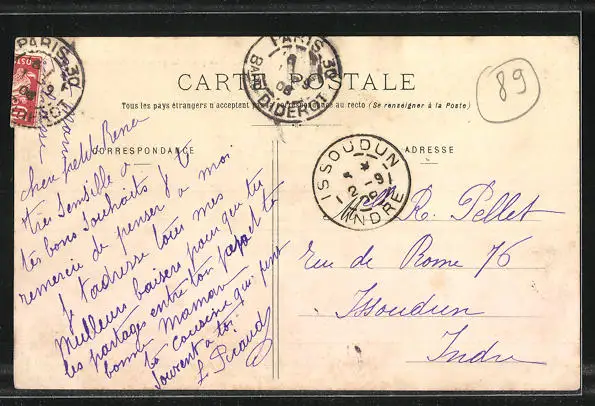 PARIS 30
PARIS 30
CARTE POSTALE
89
Tous les pays étrangers n'acceptent pas la correspondance au recto (Se renseigner à la Poste)
CORRESPONDANCE
ADRESSE
ISSOUDUN
INDRE
cher petit René
très sensible à
tes bons souhaits je te
remercie de penser à moi
je t'adresse tous mes
meilleurs baisers pour que tu
les partages entre ton papa et ta
bonne maman
ta cousine qui pense
souvent à toi
Mlle R. Pellet
rue de Rome 76
Issoudun
Indre